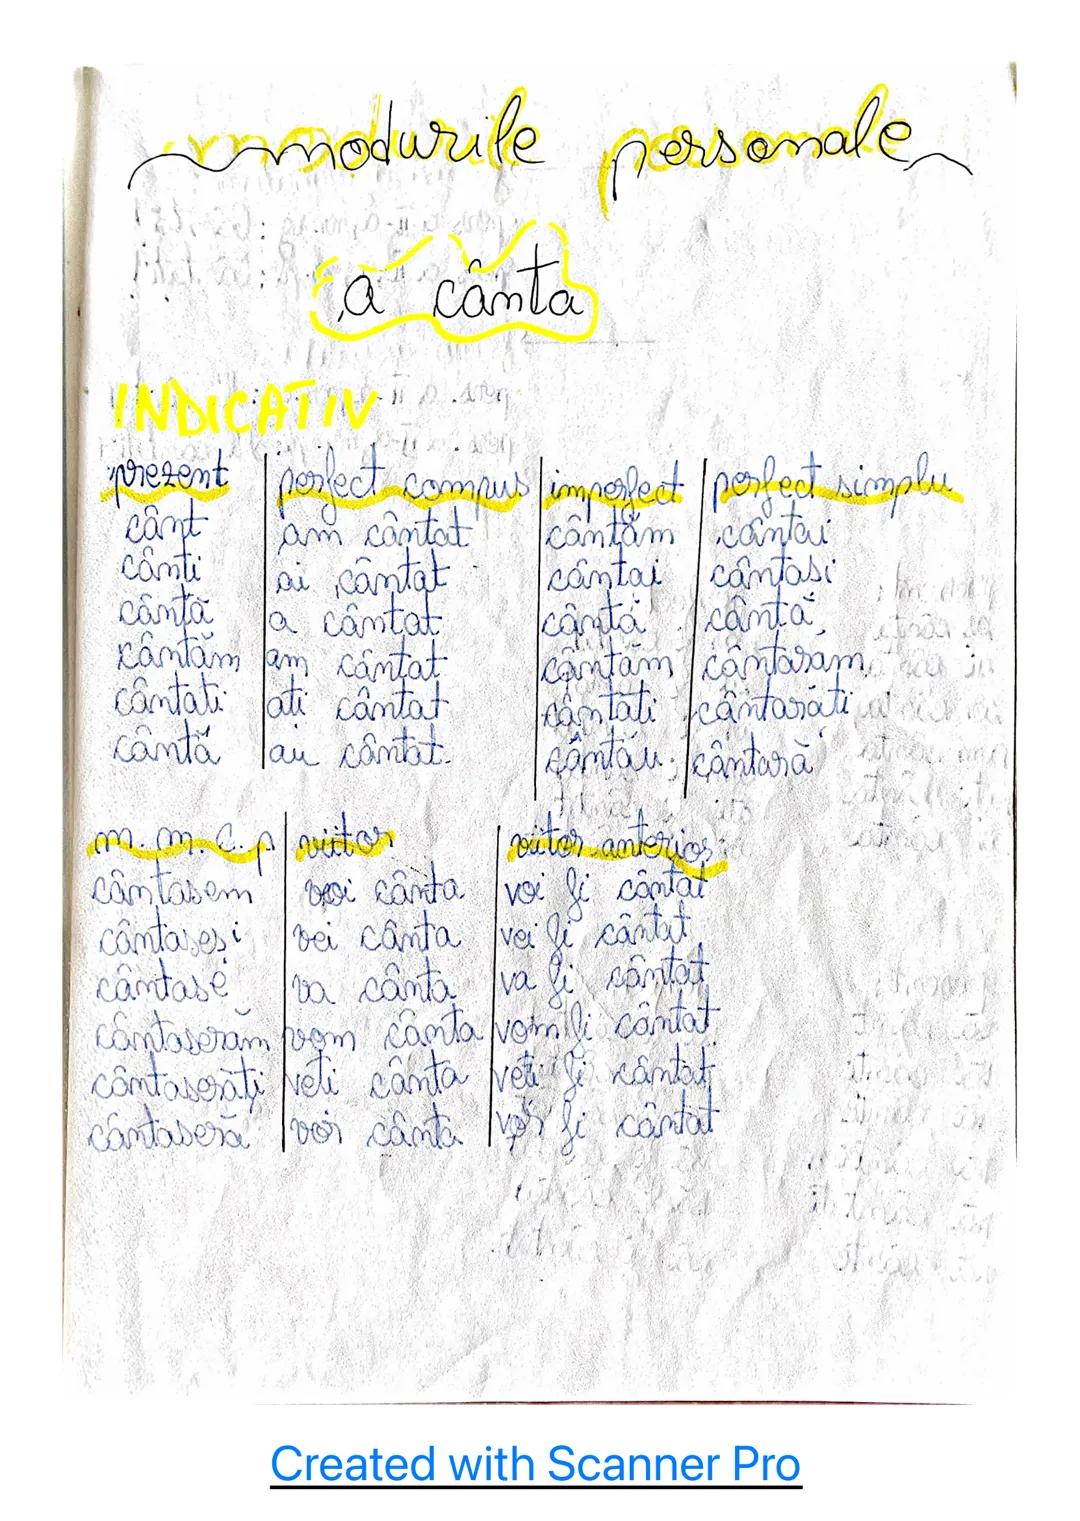 modurile personale
a cânta
INDICATIV
prezent | perfect compus | imperfect | perfect simplu
cânt | am cântat | cântam | cântai
cânti | ai cântat | cântai | cântasi
cântă | a cântat | cânta | cântă
cântăm | am cântat | cântam | cântarăm
cântati | ati cântat | cântati | cântarăti
cântă | au cântat. | cântau | cântară
m. m. c. p | viitor | viitor anterior
cântasem | voi cânta | voi fi cântat
cântasesi | vei cânta | vei fi cântat
cântase | va cânta | va fi cântat
cântaserăm | vom cânta | vom fi cântat
cântaserăți | veti cânta | veti fi cântat
cântaseră | vor cânta | vor fi cântat
Created with Scanner Pro